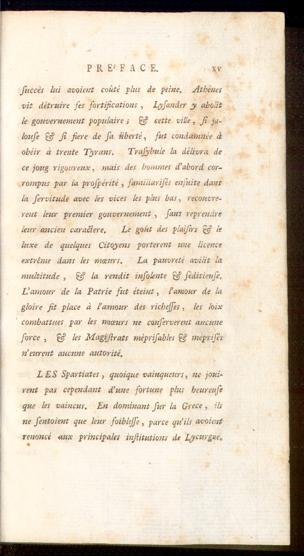 PRÉFACE. xv
succès lui avoient coûté plus de peine. Athènes
vit détruire ses fortifications, Lysander y abolit
le gouvernement populaire ; & cette ville, si ja-
louse & si fiere de sa liberté, fut condamnée à
obéir à trente Tyrans. Trasybule la délivra de
ce joug rigoureux, mais des hommes d'abord cor-
rompus par la prospérité, familiarisés ensuite dans
la servitude avec les vices les plus bas, recouvre-
rent leur premier gouvernement, sans reprendre
leur ancien caractere. Le goût des plaisirs & le
luxe de quelques Citoyens porterent une licence
extrême dans les mœurs. La pauvreté avilit la
multitude, & la rendit insolente & séditieuse.
L'amour de la Patrie fut éteint, l'amour de la
gloire fit place à l'amour des richesses, les loix
combattues par les mœurs ne conserverent aucune
force, & les Magistrats méprisables & méprisés
n'eurent aucune autorité.
LES Spartiates, quoique vainqueurs, ne joui-
rent pas cependant d'une fortune plus heureuse
que les vaincus. En dominant sur la Grece, ils
ne sentoient que leur foiblesse, parce qu'ils avoient
renoncé aux principales institutions de Lycurgue.